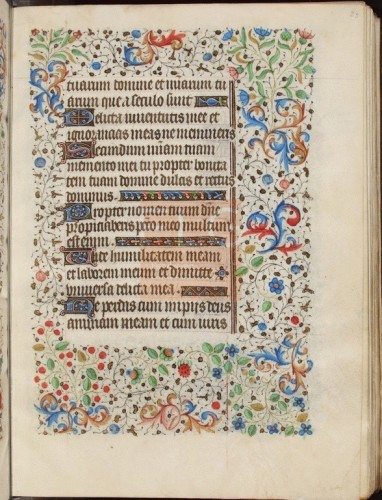 tuarum domine et miarum tu
arum que a seculo sunt
Delicta iuuentutis mee et
ignorancias meas ne memineris
Secundum miam tuam
memento mei tu propter bonita
tem tuam domine dulcis et rectus
dominus
Propter nomen tuum dne
propiciaberis peccato meo multum
est enim
Vide humilitatem meam
et laborem meum et dimitte
vniuersa delicta mea
Ne perdas cum impijs deus
animam meam et cum viris